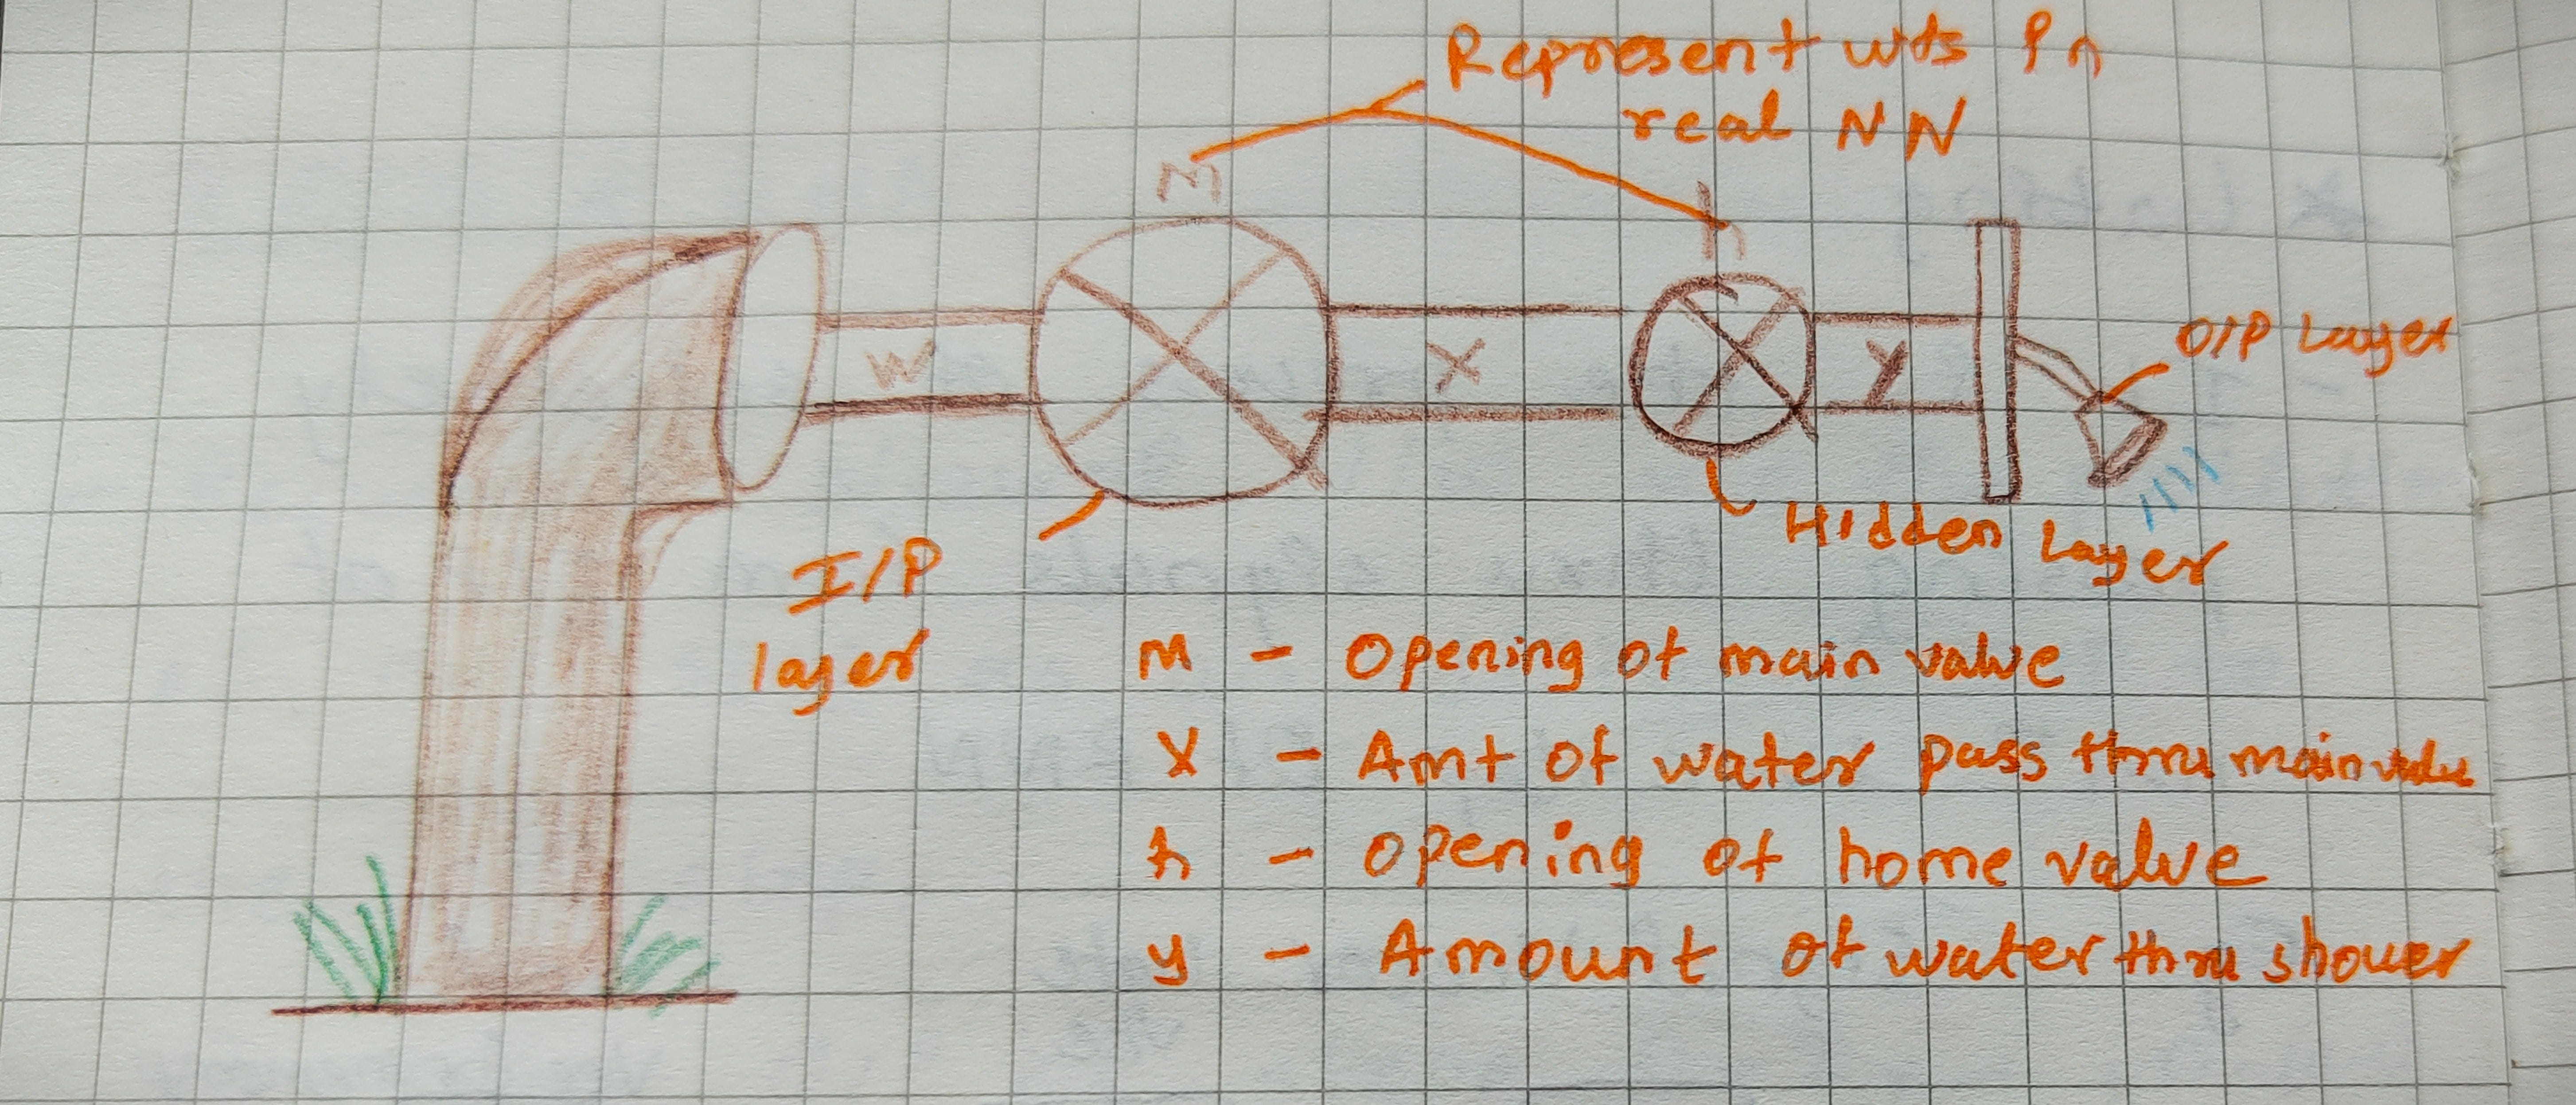 Represent wts in
real NN
M
h
W
X
y
O/P Layer
Hidden Layer
I/P
layer
M - Opening of main valve
X - Amt of water pass thru main valve
h - opening of home valve
y - Amount of water thru shower